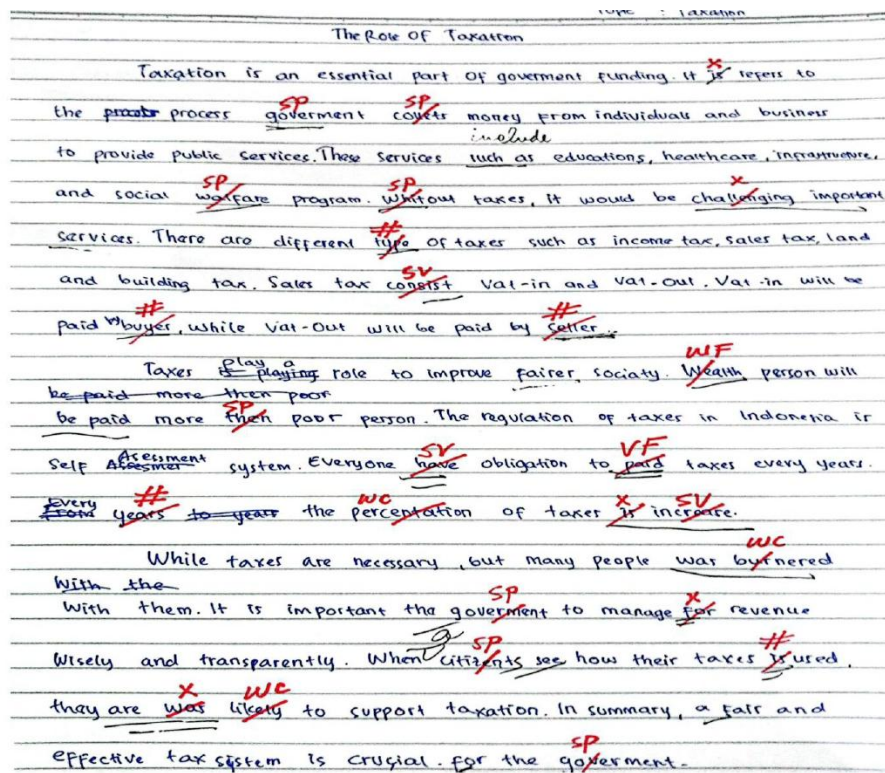 Topic : Taxation
The Role Of Taxation
X
Taxation is an essential part of goverment funding. It is refers to
SP SP
the process goverment covets money from individuals and business
include
to provide public services. These services such as educations, healthcare, infrastructure,
SP SP X
and social walfare program. Whitout taxes, it would be challenging important
#
services. There are different type of taxes such as income tax, sales tax, land
SV
and building tax. Sales tax consist Vat-in and Vat-out. Vat-in will be
# #
paid by buyer, while Vat-Out will be paid by seller.
play a WF
Taxes is playing role to improve fairer, sociaty. Wealth person will
be paid more then poor
SP
be paid more then poor person. The regulation of taxes in Indonesia is
Asessment SV VF
Self system. Everyone have obligation to paid taxes every years.
Every # WC X SV
From years to years the percentation of taxes is increase.
WC
While taxes are necessary, but many people was burnered
With the
SP X
With them. It is important the goverment to manage for revenue
SP #
Wisely and transparently. When citizents see how their taxes is used,
X WC
they are was likely to support taxation. In summary, a fair and
SP
effective tax system is crucial for the goverment.